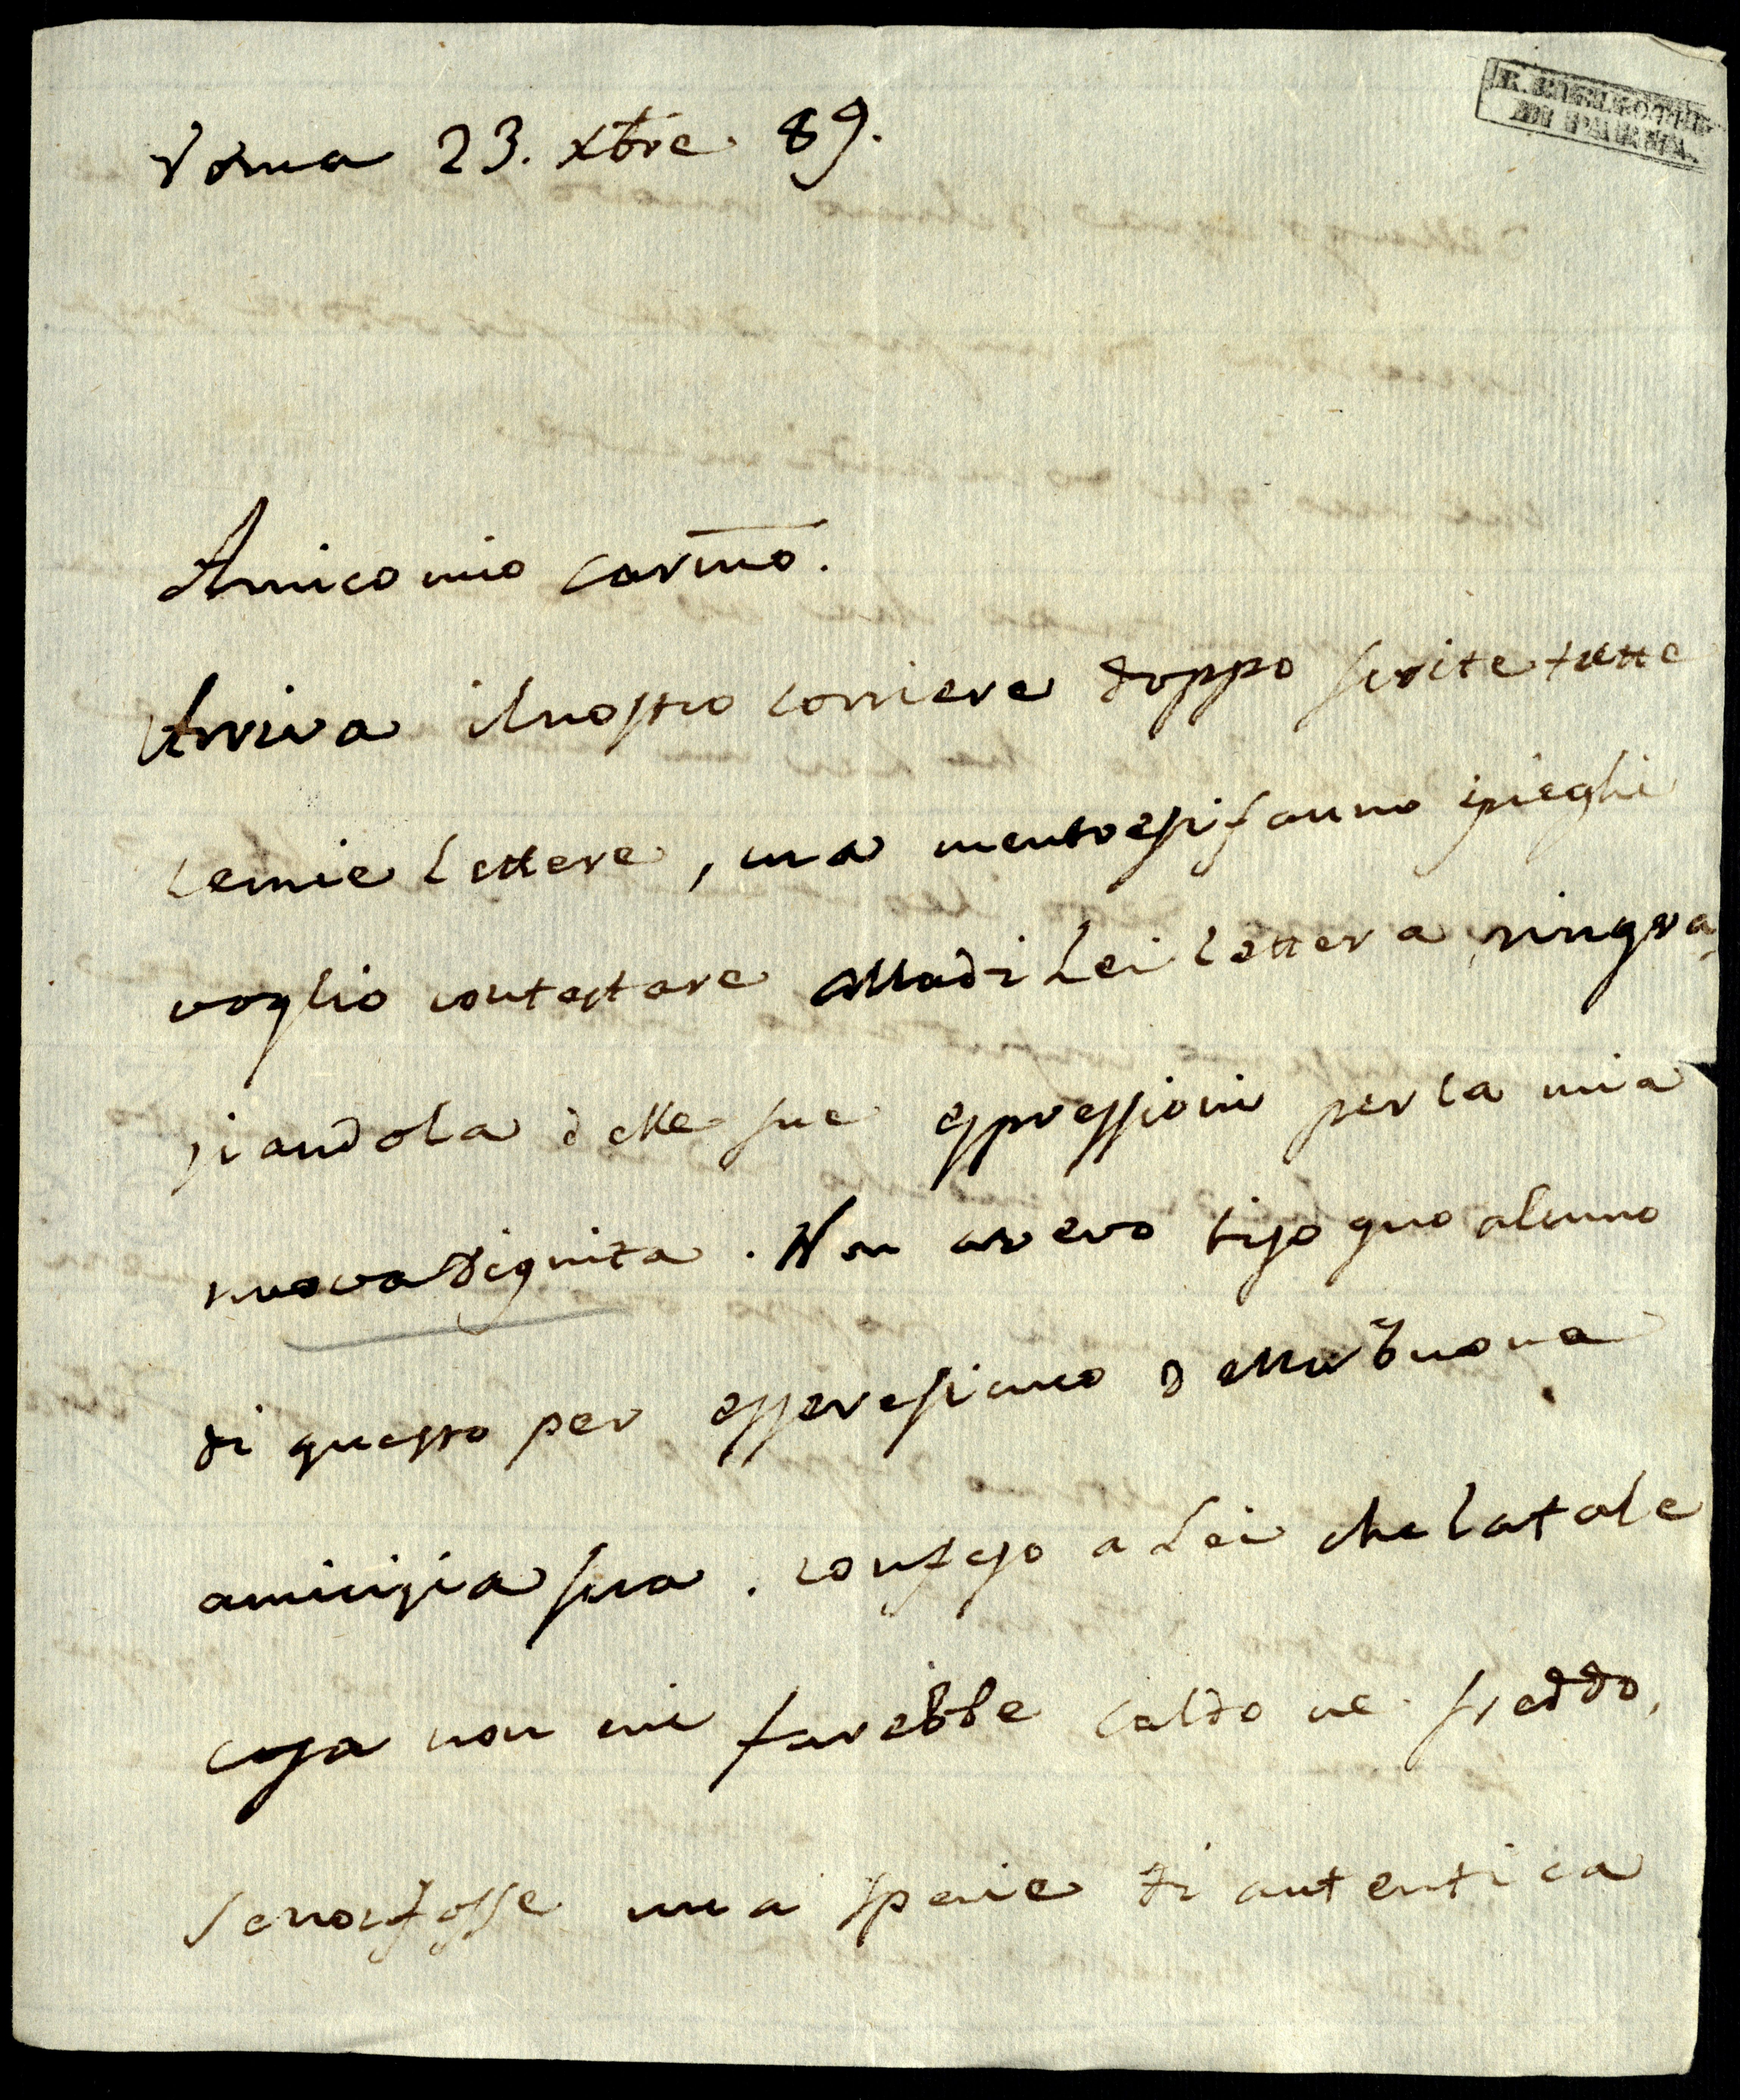 R. BIBLIOTECA
DI PARMA.
Roma 23. Xbre. 89.
Amico mio carimo.
Arriva il nostro corriere doppo scritte tutte
le mie lettere, ma mentre si fanno i pieghi
voglio contestare alla di Lei lettera ringra
ziandola delle sue espressioni per la mia
nuova Dignita. Non avevo bisogno alcuno
di questo per essere sicuro della buona
amicizia sua. confesso a Lei che la tale
cosa non mi farebbe caldo ne freddo,
se non fosse una specie di autentica